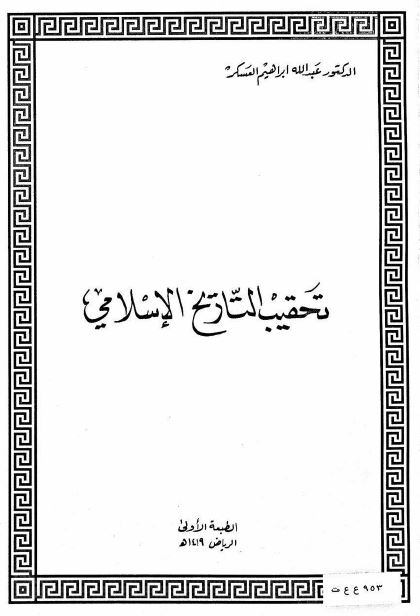 الدكتور عبدالله ابراهيم العسكر
تحقيب التاريخ الإسلامي
الطبعة الأولى
الرياض ١٤١٩هـ
٩٥٣ ع ع ت